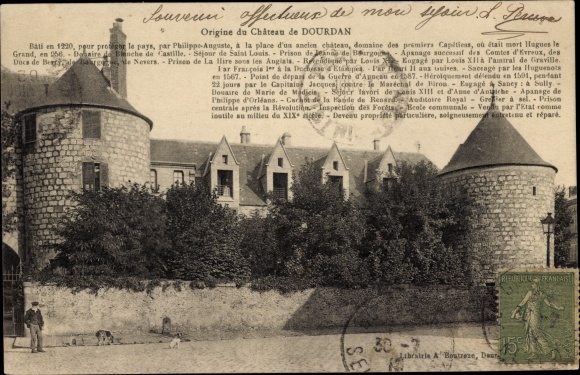 Souvenir affectueux de mon séjour
Origine du Château de DOURDAN
Bâti en 1220, pour protéger le pays, par Philippe-Auguste, à la place d'un ancien château, domaine des premiers Capétiens, où était mort Hugues le
Grand, en 956. - Douaire de Blanche de Castille. - Séjour de Saint Louis. - Prison de Jeanne de Bourgogne. - Apanage successif des Comtes d'Evreux, des
Ducs de Berry, de Bourgogne, de Nevers. - Prison de La Hire sous les Anglais. - Revendiqué par Louis XI. - Engagé par Louis XII à l'amiral de Graville.
Par François Ier à la Duchesse d'Etampes. - Par Henri II aux Guises. - Saccagé par les Huguenots
en 1567. - Point de départ de la Guerre d'Auneau en 1587. - Héroïquement défendu en 1591, pendant
22 jours par le Capitaine Jacques contre le Maréchal de Biron. - Engagé à Sancy; à Sully. -
Douaire de Marie de Médicis. - Séjour favori de Louis XIII et d'Anne d'Autriche. - Apanage de
Philippe d'Orléans. - de la Bande de Renard. - Auditoire Royal - Grenier à sel. - Prison
centrale après la Révolution. - Inspection des Forêts. - Ecole communale - Vendu par l'Etat comme
inutile au milieu du XIXe siècle. - Devenu propriété particulière, soigneusement entretenu et réparé.
Librairie A. Boutroue,
REPUBLIQUE FRANÇAISE
15c